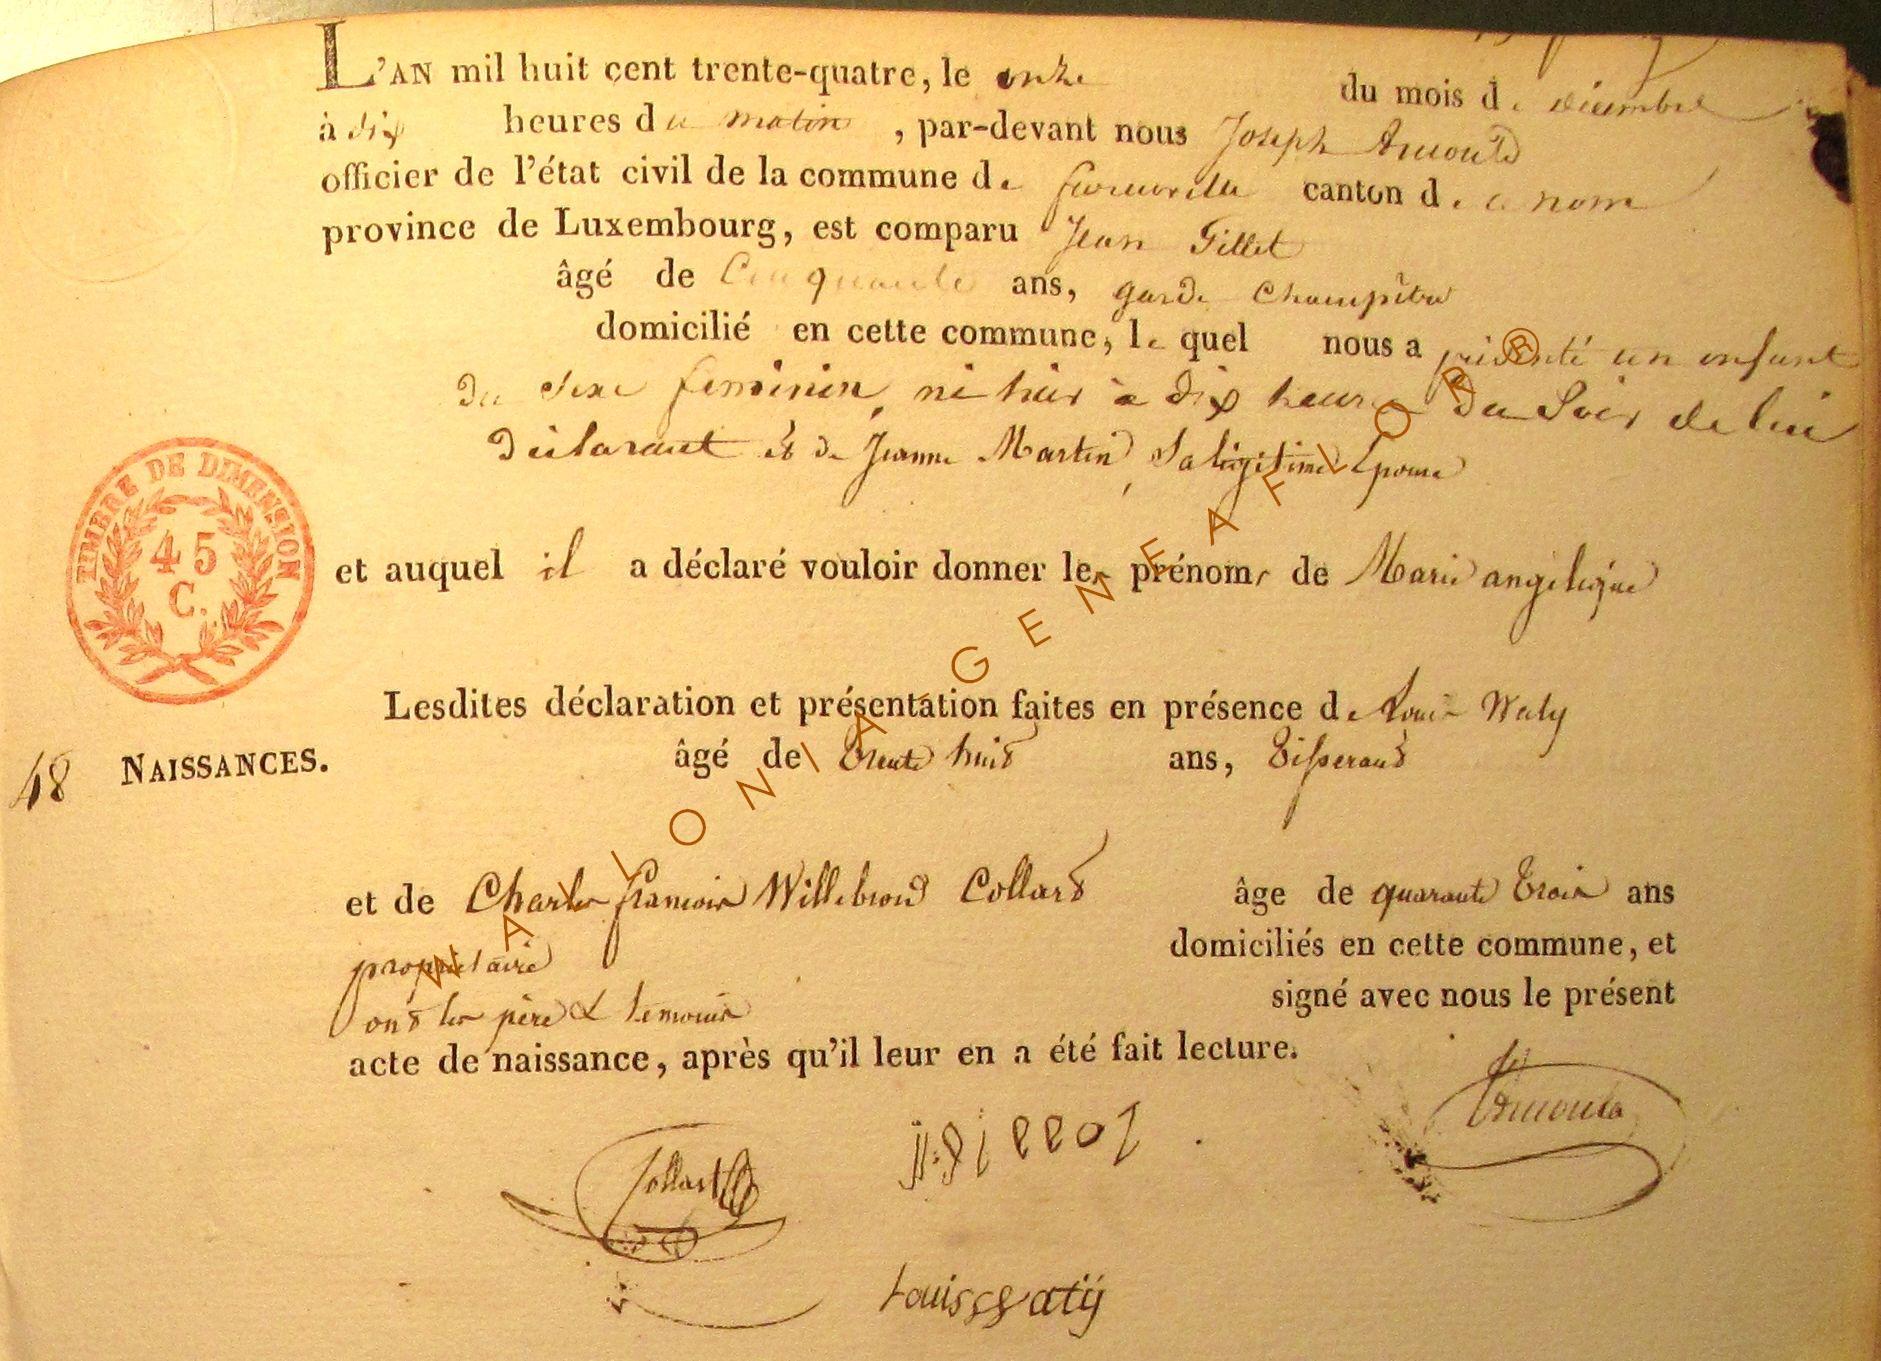 L'AN mil huit cent trente-quatre, le onze du mois de décembre
à dix heures du matin, par-devant nous Joseph Arnould
officier de l'état civil de la commune de canton de
province de Luxembourg, est comparu Jean Gillet
âgé de Cinquante ans, garde Champêtre
domicilié en cette commune, le quel nous a présenté un enfant
du sexe feminin, né hier à dix heures du Soir de lui
Déclarant et de Jeanne Martin, Sa légitime Epouse
et auquel il a déclaré vouloir donner les prénoms de Marie angelique
TIMBRE DE DIMENSION
45
C.
Lesdites déclaration et présentation faites en présence de Louis Waty
48 NAISSANCES.
âgé de trente huit ans, Tisserand
et de Charles francois Willebrord Collard âge de quarante trois ans
propriétaire domiciliés en cette commune, et
ont les père & temoins signé avec nous le présent
acte de naissance, après qu'il leur en a été fait lecture.
Arnould
Collard
Louis Watÿ
WALLONIA-GENEAFLOR®